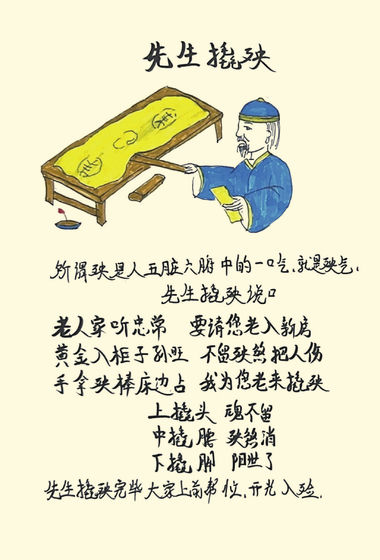 先生撬殃
所谓殃是人五脏六腑中的一口气,就是殃气,
先生撬殃说口
老人穿听忠常 要请您老入新房
黄金入柜子孙旺 不留殃煞把人伤
手拿殃棒床边占 我为您老来撬殃
上撬头 魂不留
中撬腰 殃煞消
下撬脚 阳世了
先生撬殃完毕大家上前帮忙,开光入殓.